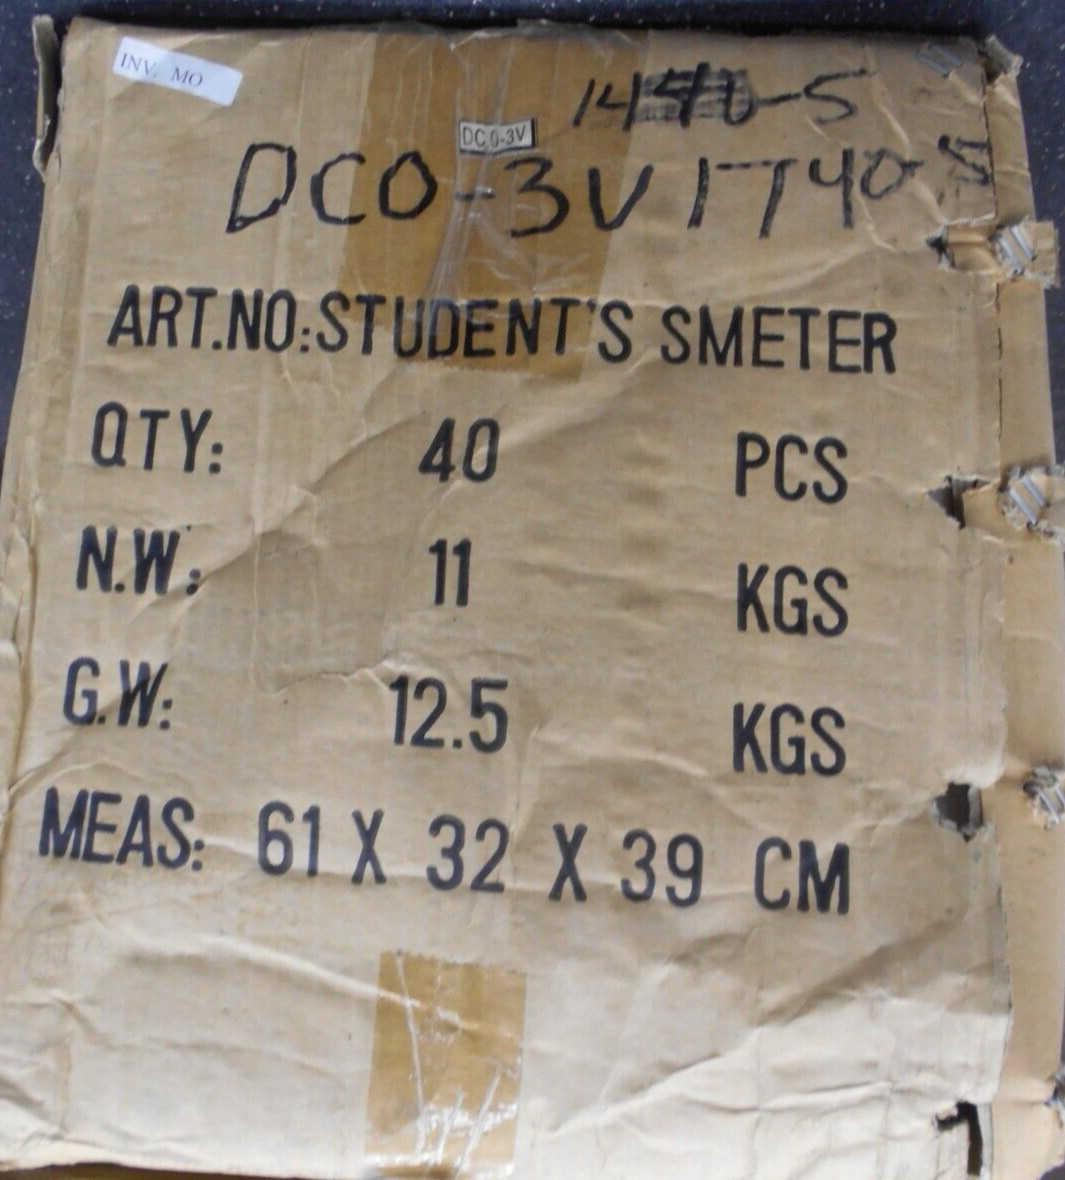 INV. MO
DC 0-3V
DC0-3V 1740-
ART.NO:STUDENT'S SMETER
QTY: 40 PCS
N.W: 11 KGS
G.W: 12.5 KGS
MEAS: 61 X 32 X 39 CM